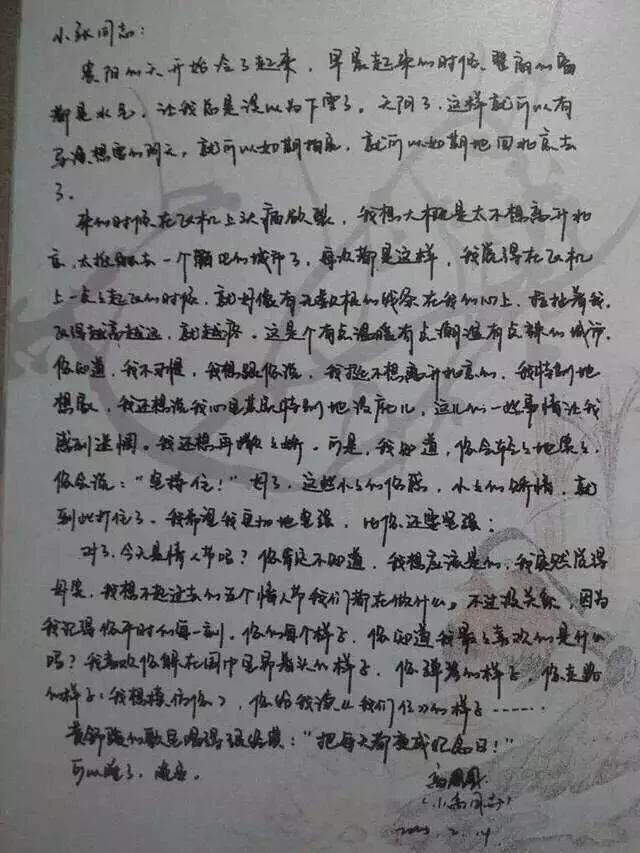 小张同志：
襄阳的天开始冷了起来，早晨起来的时候，整扇的窗
都是水气，让我总是误以为下雪了。天阴了，这样就可以有
导演想要的阴天，就可以如期拍完，就可以如期地回北京去
了。
来的时候在飞机上头痛欲裂，我想大概是太不想离开北
京，太抵触去一个陌生的城市了，每次都是这样，我觉得在飞机
上一点点起飞的时候，就好像有无数根的线系在我的心上，拉扯着我，
飞得越高越远，就越疼。这是个有点温暖有点潮湿有点辣的城市。
你知道，我不习惯，我想跟你说，我挺不想离开北京的，我特别地
想家，我还想说我心里其实特别地没底儿，这儿的一些事情让我
感到迷惘。我还想再撒点娇。可是，我知道，你会轻轻地笑笑，
你会说："坚持住！"好了，这些小小的伤感，小小的矫情，就
到此打住了。我希望我更加地坚强，比你还要坚强；
对了，今天是情人节吗？你肯定不知道，我想应该是的，我突然觉得
，我想不起过去的五个情人节我们都在做什么。不过没关系，因为
我记得你平时的每一刻，你的每个样子，你知道我最喜欢的是什么
吗？我喜欢你躲在围巾里界着头的样子，你弹琴的样子，你走路
的样子（我想模仿你），你给我读《我们仨》的样子……
黄舒骏的歌里唱得很好："把每天都变成纪念日！"
可以睡了，晚安。
（小　同志）
2.14